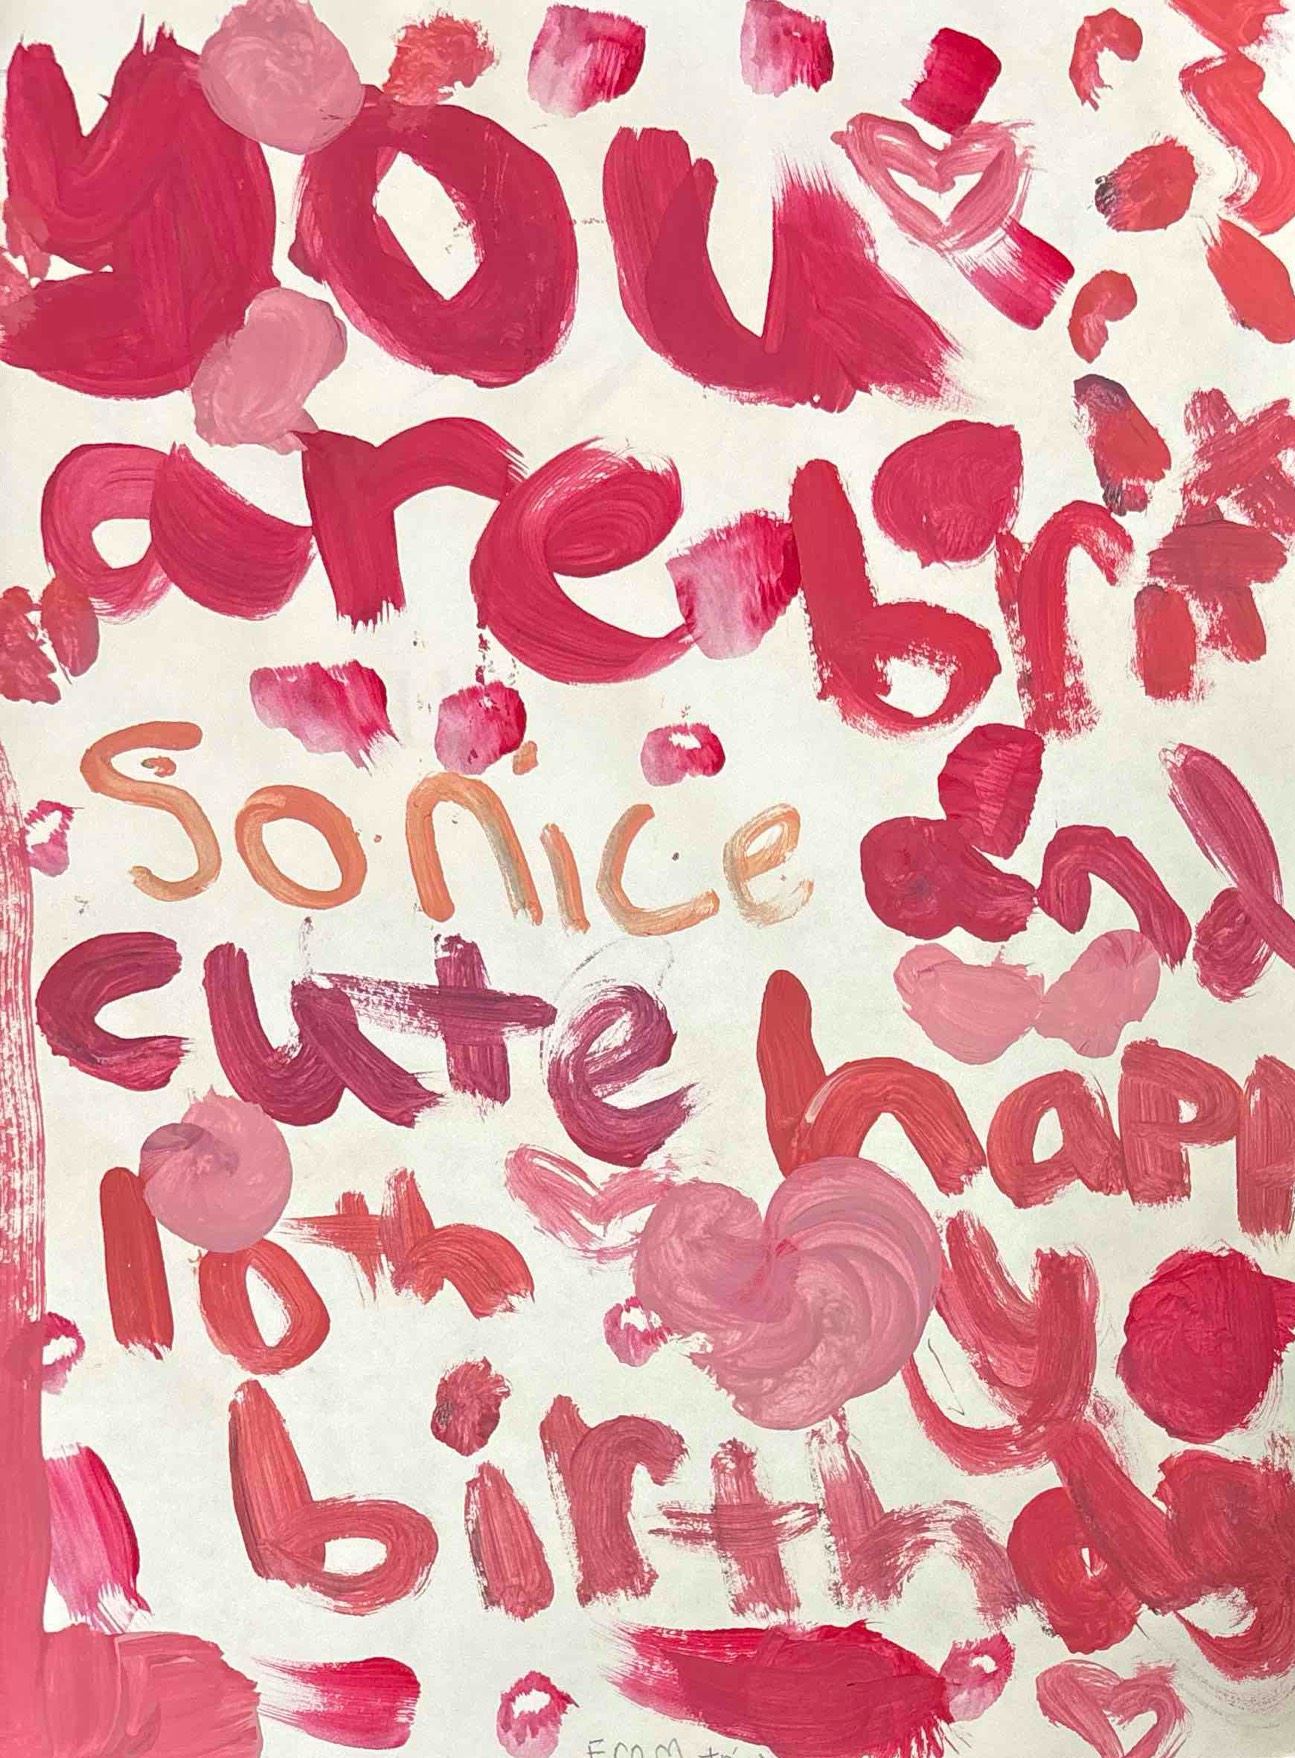 you
are brit
So nice and
cute happ
10th y
birthday
From